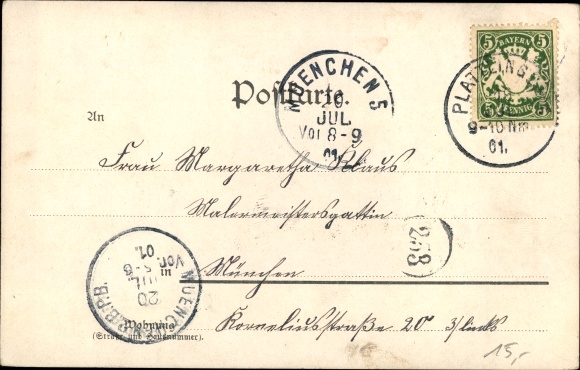 5 BAYERN 5
5 PFENNIG 5
PLATTLING
9-10 Nm
01.
MUENCHEN 5
20
JUL
Vor 8-9
01.
Postkarte.
An
Frau Margaretha Klaus
Malermeistersgattin
253
in
München
MUENCHEN
20
JUL
Vor.
01.
Wohnung
(Straße und Hausnummer).
Korneliusstraße 20 3/links
15,-